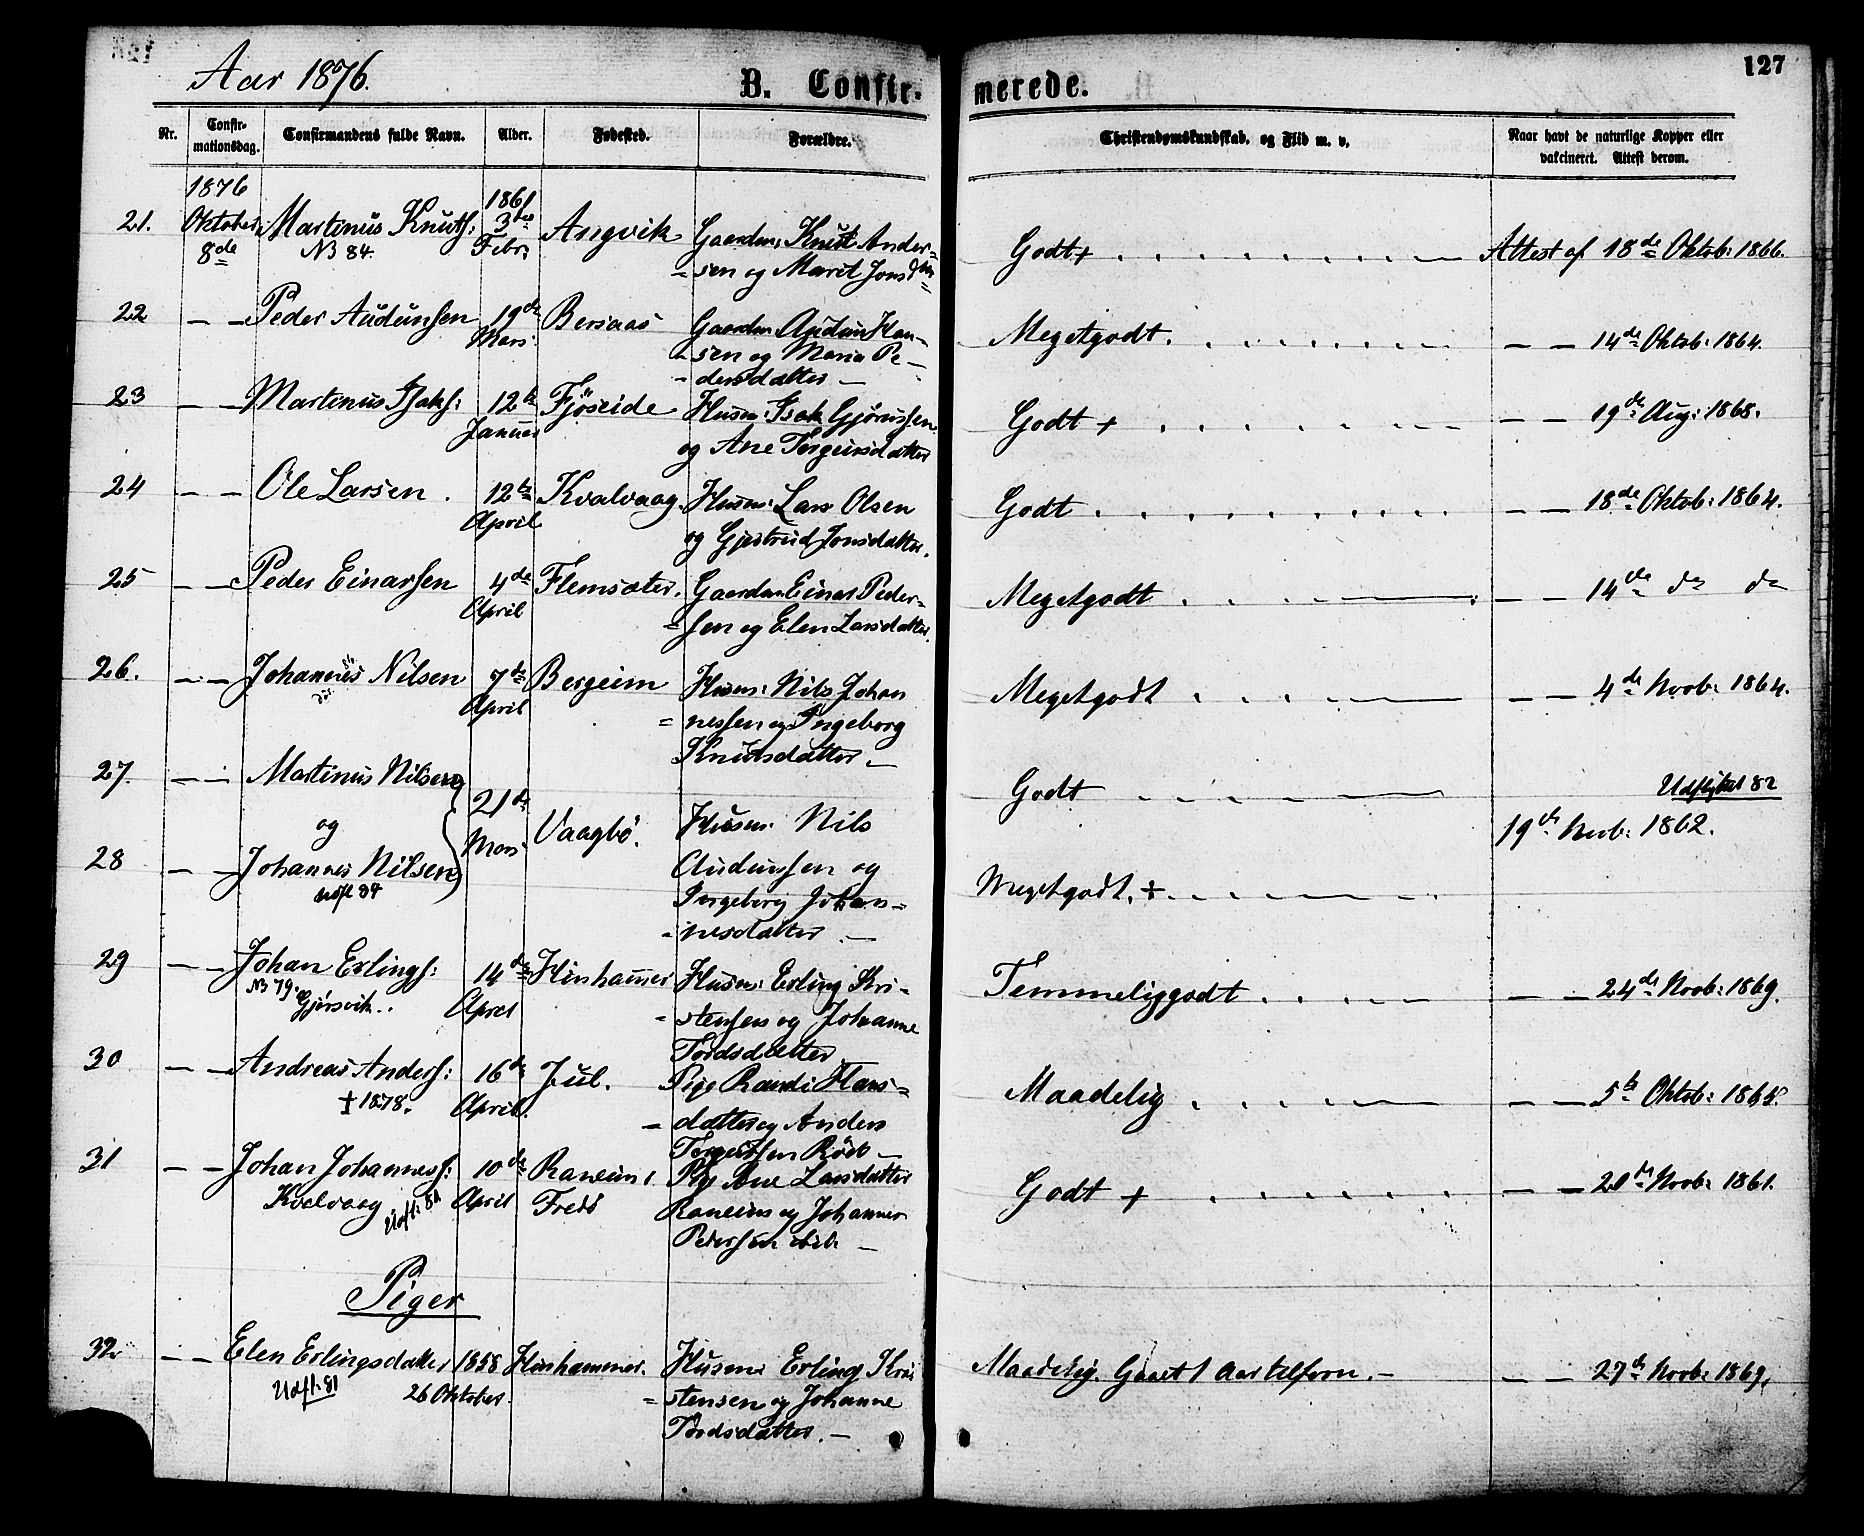 Aar 1876.
B. Confirmerede.
127
Nr.
Confirmationsdag.
Confirmandens fulde Navn.
Alder.
Fødested.
Forældre.
Christendomskundskab, og Flid m. v.
Naar havt de naturlige Kopper eller
vakcineret. Attest derom.
1876 1861
21. Oktober Martinus Knuts: 3die Angvik Gaardm: Knut Ander- Godt + Attest af 18de Oktob: 1866.
8de NB 84. Febr: sen og Marit Jonsdtr
22 — — Peder Audunsen 19de Bersaas Gaardm Audun Han- Megetgodt. — — 14de Oktob: 1864.
Mars. sen og Maria Pe-
dersdatter —
23 — — Martinus Isaks: 12te Fjöseide Husm: Isak Gjörussen Godt + — — 19de Aug: 1868.
Januar og Ane Torgeirsdatter
24 — — Ole Larsen. 12te Kvalvaag. Husm: Lars Olsen Godt — — 18de Oktob: 1864.
April og Gjertrud Jonsdatter.
25 — — Peder Einarsen 4de Flemsæter. Gaardm Einar Peder- Megetgodt — — 14de do do
April sen og Elen Larsdatter.
26. — — Johannes Nilsen 7de Bergeim Husm: Nils Johan Megetgodt — — 4de Novb: 1864.
April = nessen og Ingeborg
Knutsdatter —
27. — — Martinus Nilsen Godt Udflyttet 82
og 21de Mars. Vaagbö. Husm: Nils 19de Novb: 1862.
28 — — Johannes Nilsen Audunsen og Megetgodt. +
Udfl 84 Ingeborg Johan-
nesdatter —
29 — — Johan Erlings: 14de Hinhammer Husm: Erling Kri- Temmeliggodt — — 24de Novb: 1869.
NB 79. Gjörsvik.. April stensen og Johanne
Tordsdatter
30 — — Andreas Anders: 16de Jul. Pige Randi Hans- Maadelig — — 5te Oktob: 1865.
+ 1878. April datter og Anders
Torgersen Röd —
31 — — Johan Johanness: 10de Raneim, Pig Ane Larsdatter Godt + — — 20de Novb: 1861.
Kvalvaag Udfl: 81 April Fredö Raneim og Johannes
Pedersen ibid. —
Piger
32 — — Elen Erlingsdatter 1858 Hinhammer. Husm: Erling Kri Maadelig. Gaaet 1 Aar tilforn. — — — 27de Novb: 1869.
Udfl: 81 26 Oktober. = stensen og Johanne
Tordsdatter. —